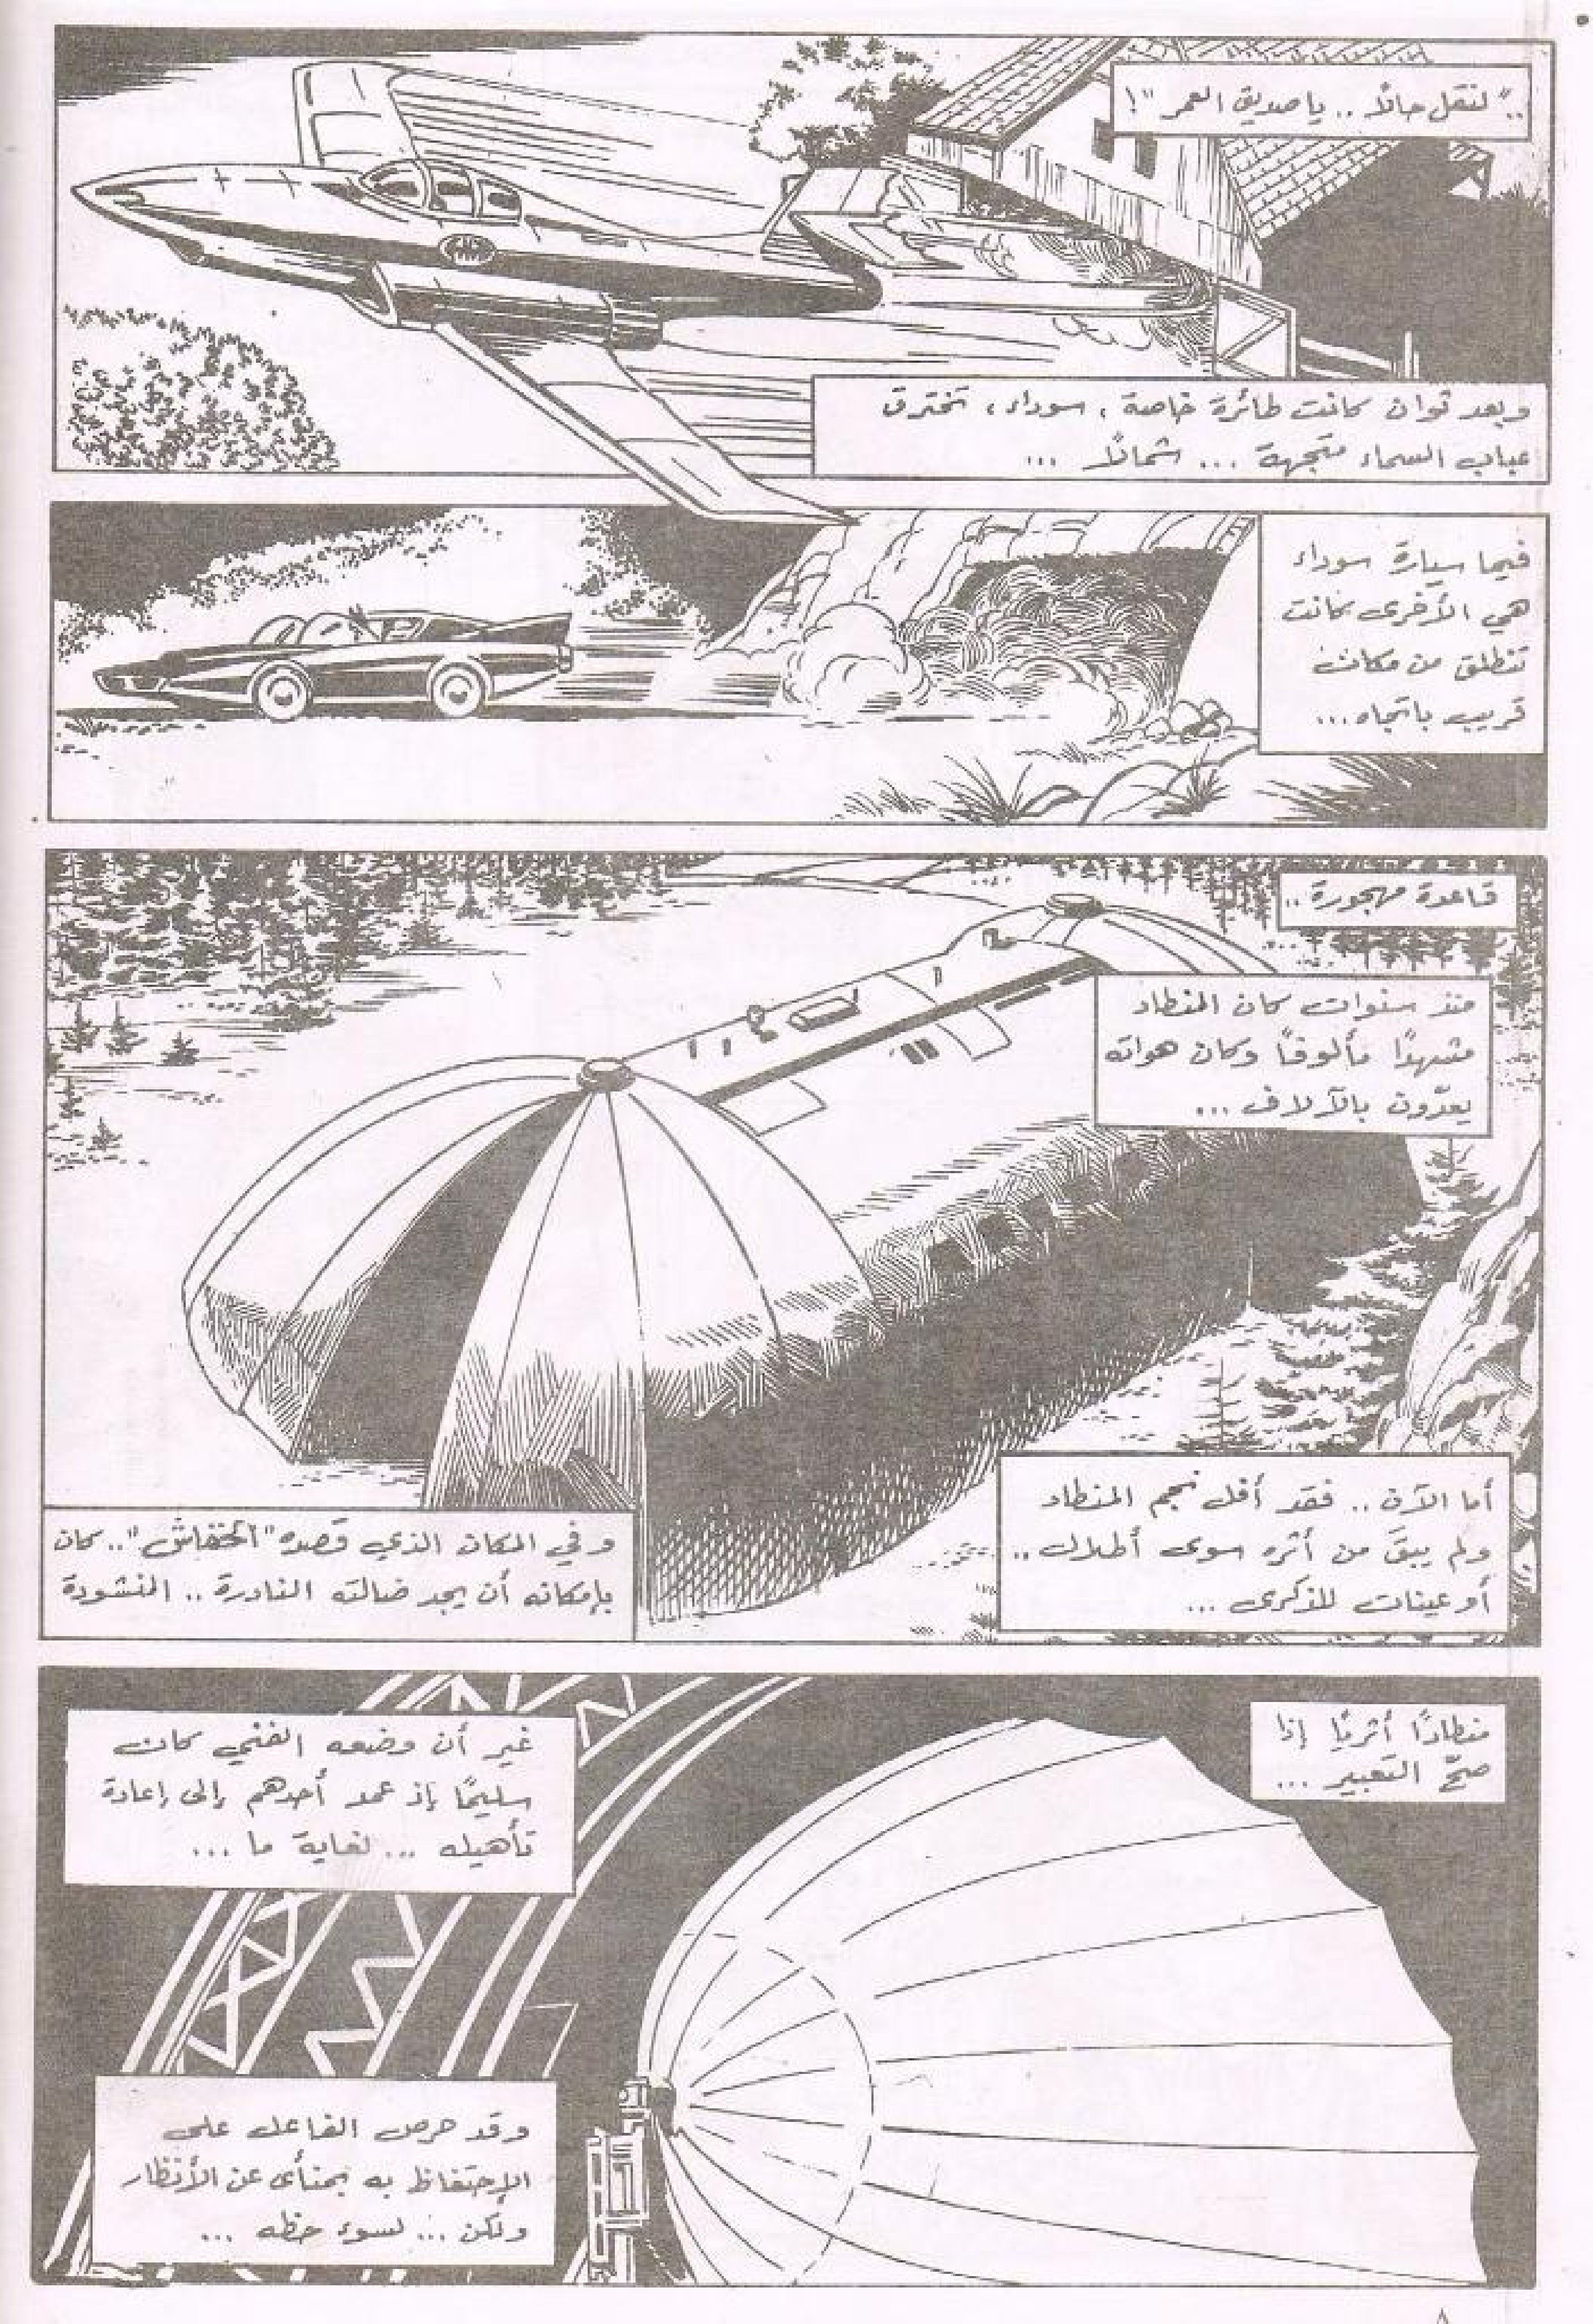 .."لنقل حالاً .. يا صديق العمر"!
وبعد ثوان كانت طائرة خاصة، سوداء، تخترق
عباب السماء متجهة ... شمالاً ...
فيما سيارة سوداء
هي الأخرى كانت
تنطلق من مكان
قريب باتجاه ...
قاعدة مهجورة ..
منذ سنوات كان المنطاد
مشهدًا مألوفًا وكان هواته
يعدّون بالآلاف ...
أما الآن .. فقد أفل نجم المنطاد
ولم يبقَ من أثره سوى أطلال ..
أو عينات للذكرى ...
وفي المكان الذي قصده "الخفاش" .. كان
بإمكانه أن يجد ضالته النادرة .. المنشودة
منطادًا أثريًا إذا
صحّ التعبير ...
غير أن وضعه الفني كان
سليمًا إذ عمد أحدهم إلى إعادة
تأهيله ... لغاية ما ...
وقد حرص الفاعل على
الإحتفاظ به بمنأى عن الأنظار
ولكن ... لسوء حظه ...
٨